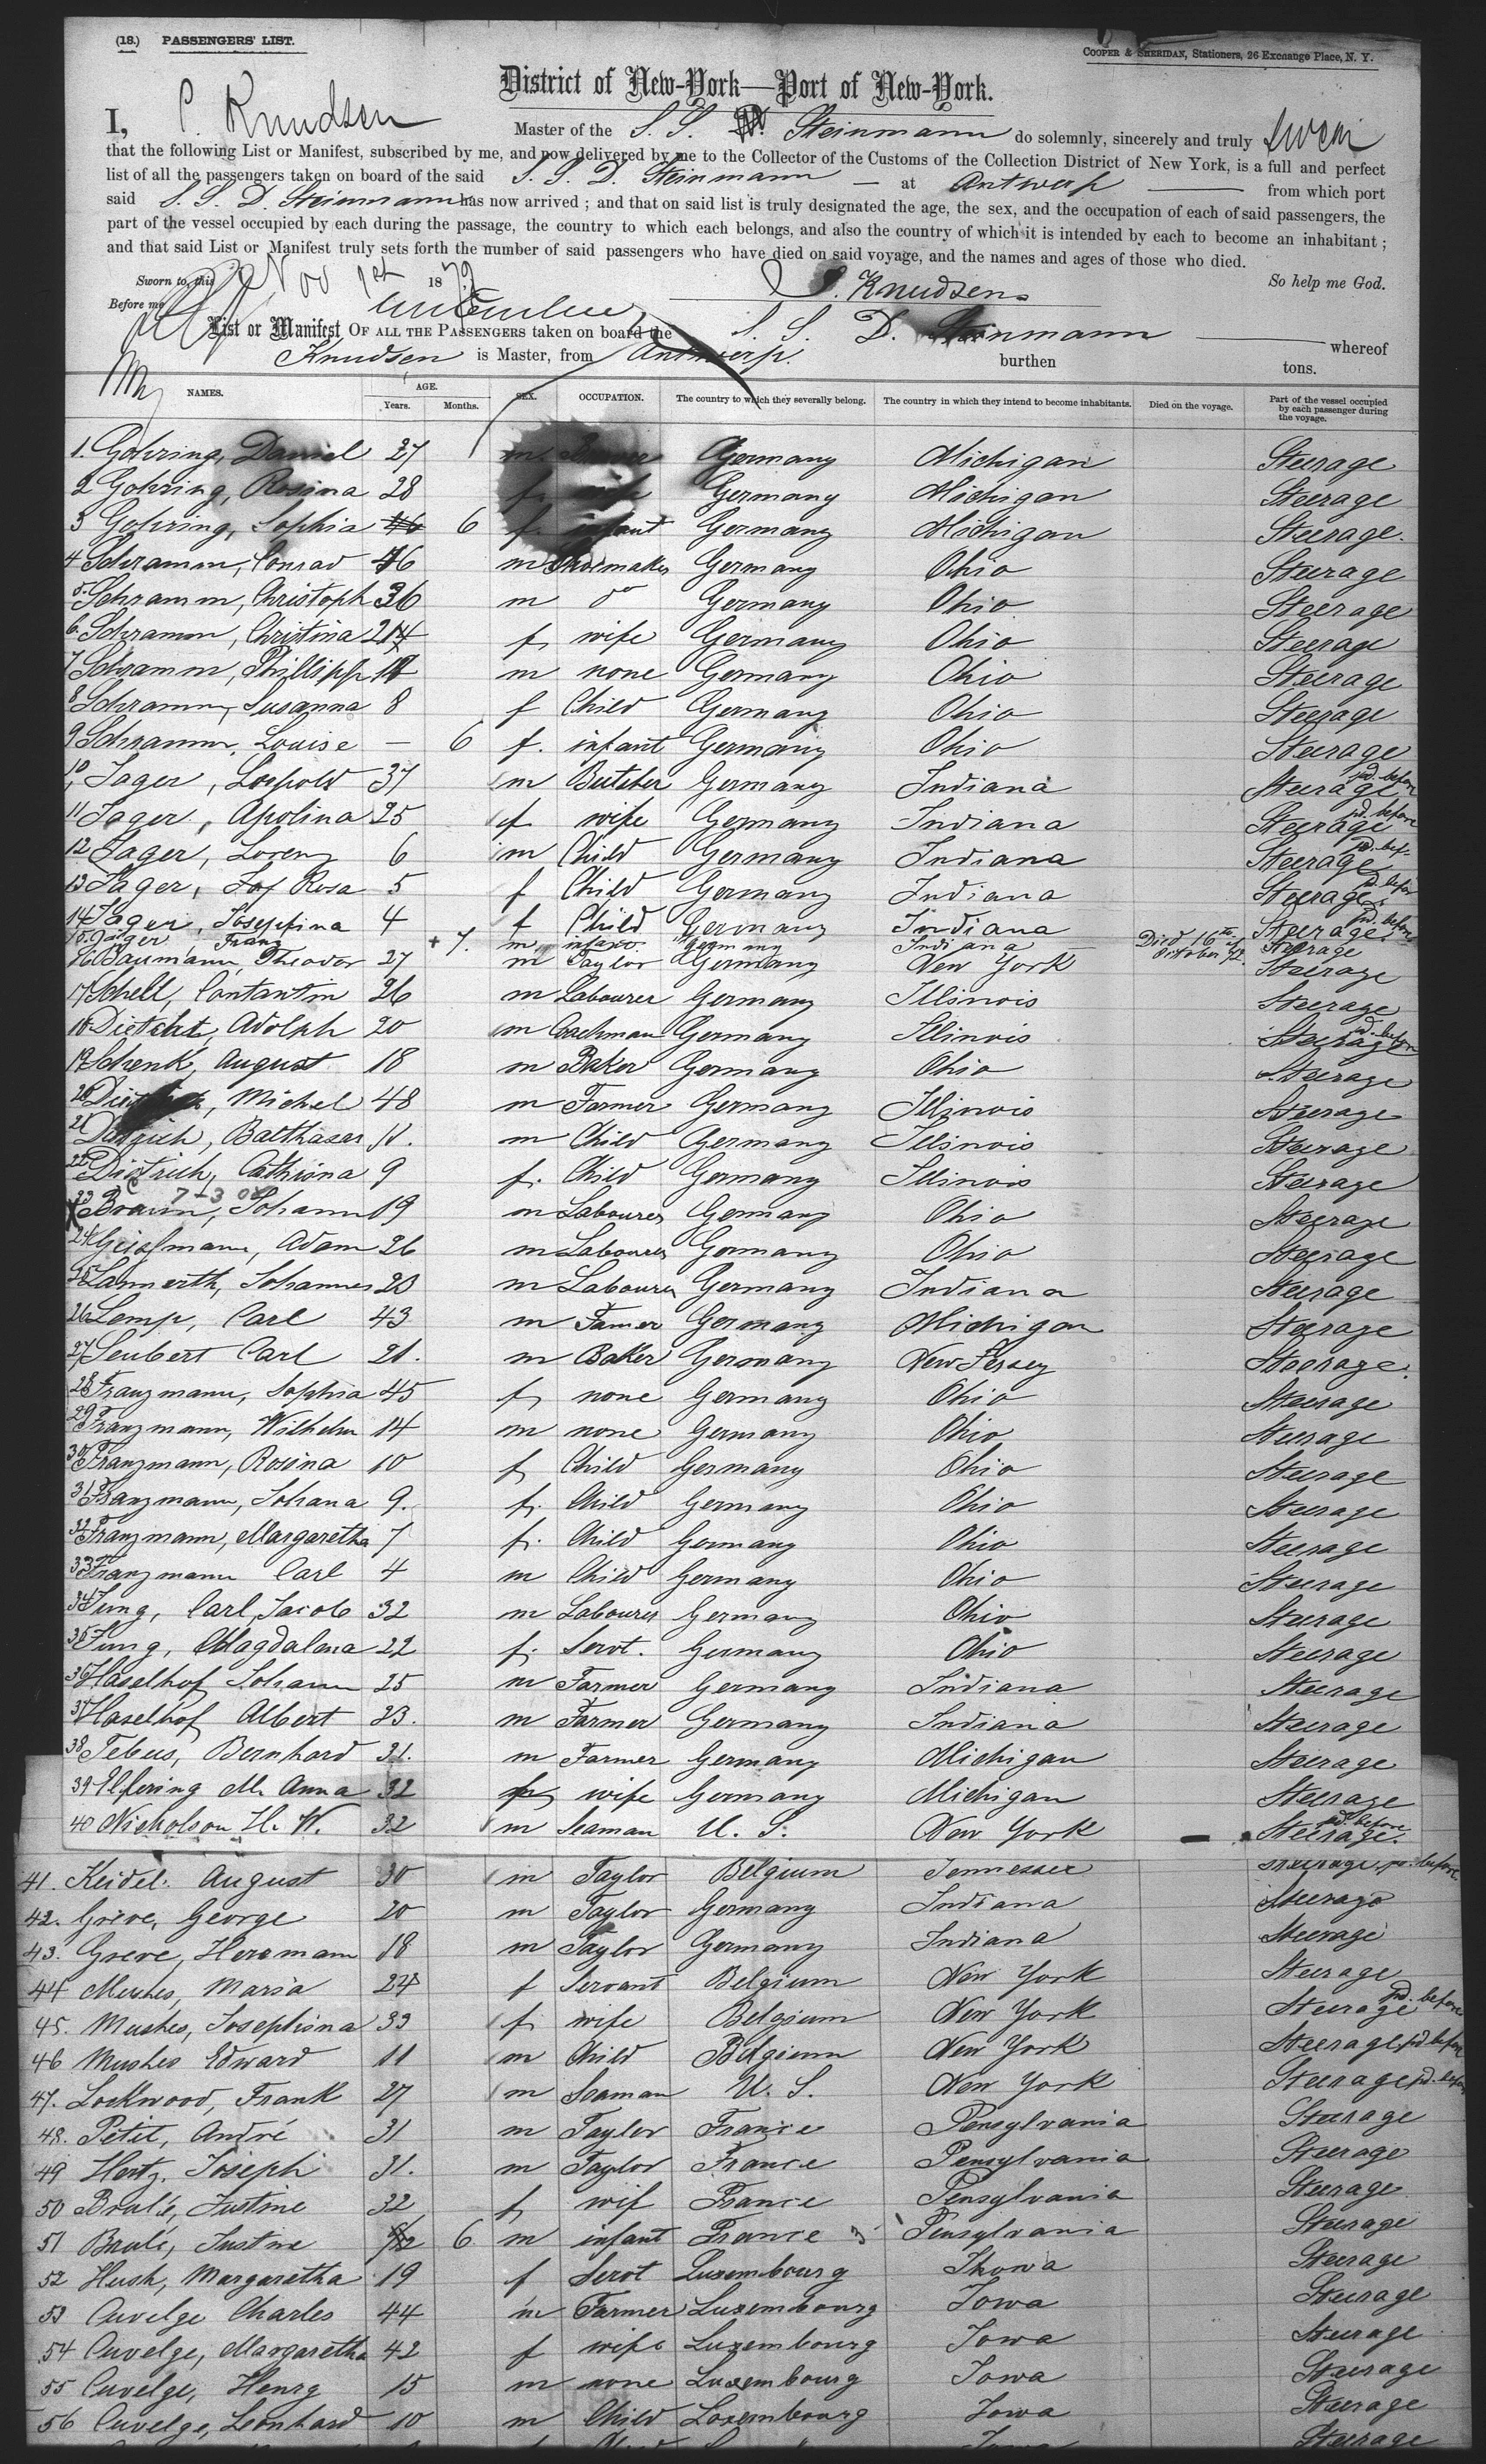 (18.) PASSENGERS' LIST.
COOPER & SHERIDAN, Stationers, 26 Exchange Place, N. Y.
District of New-York—Port of New-York.
I, P. Knudsen Master of the S. S. D. Steinmann do solemnly, sincerely and truly swear
that the following List or Manifest, subscribed by me, and now delivered by me to the Collector of the Customs of the Collection District of New York, is a full and perfect
list of all the passengers taken on board of the said S. S. D. Steinmann — at Antwerp — from which port
said S. S. D. Steinmann has now arrived; and that on said list is truly designated the age, the sex, and the occupation of each of said passengers, the
part of the vessel occupied by each during the passage, the country to which each belongs, and also the country of which it is intended by each to become an inhabitant;
and that said List or Manifest truly sets forth the number of said passengers who have died on said voyage, and the names and ages of those who died.
Sworn to, this Nov 1st 1879 So help me God.
Before me P. Knudsen
List or Manifest OF ALL THE PASSENGERS taken on board the S. S. D. Steinmann whereof
Knudsen is Master, from Antwerp. burthen tons.
NAMES. AGE. Years. Months. SEX. OCCUPATION. The country to which they severally belong. The country in which they intend to become inhabitants. Died on the voyage. Part of the vessel occupied by each passenger during the voyage.
1. Gohring, Daniel 27 m Germany Michigan Steerage
2 Gohring, Rosina 28 f. wife Germany Michigan Steerage
3 Gohring, Sophia 6 f. infant Germany Michigan Steerage.
4 Schramm, Conrad 46 m Shoemaker Germany Ohio Steerage
5. Schramm, Christoph 36 m do Germany Ohio Steerage
6. Schramm, Christina 24 f. wife Germany Ohio Steerage
7 Schramm, Phillipp m none Germany Ohio Steerage
8 Schramm, Susanna 8 f Child Germany Ohio Steerage
9 Schramm, Louise — 6 f. infant Germany Ohio Steerage
10, Jager, Leopold 37 m Butcher Germany Indiana Steerage pd. before
11 Jager, Apolina 25 f wife Germany Indiana Steerage pd. before
12 Jager, Lorenz 6 m Child Germany Indiana Steerage pd. bef.
13 Jager, Rosa 5 f Child Germany Indiana Steerage pd. before
14 Jager, Josephina 4 f Child Germany Indiana Steerage pd. before
15. Jäger, Franz + 7. m infant Germany Indiana — Died 16th of October 79. Steerage
16 Baumann, Theodor 27 m Taylor Germany New York Steerage
17 Schell, Contantin 26 m Labourer Germany Illinois Steerage
18 Adolph 20 m Coachman Germany Illinois Steerage pd. before
19 Schenk, August 18 m Baker Germany Ohio Steerage
20 Michel 48 m Farmer Germany Illinois Steerage
21 Balthasar 11. m Child Germany Illinois Steerage
22 Dietrich, Cathrina 9 f. Child Germany Illinois Steerage
7-3
X 23 Braun, Johann 19 m Labourer Germany Ohio Steerage
24 Geissmann, Adam 26 m Labourer Germany Ohio Steerage
25 Lannerth, Johannes 23 m Labourer Germany Indiana Steerage
26 Lemp, Carl 43 m Farmer Germany Michigan Steerage
27 Seubert Carl 21. m Baker Germany New Jersey Steerage.
28 Franzmann, Sophia 45 f none Germany Ohio Steerage
29 Franzmann, Wilhelm 14 m none Germany Ohio Steerage
30 Franzmann, Rosina 10 f Child Germany Ohio Steerage
31 Franzmann, Johana 9. f. Child Germany Ohio Steerage
32 Franzmann, Margaretha 7 f. Child Germany Ohio Steerage
33 Franzmann Carl 4 m Child Germany Ohio Steerage
34 Jung, Carl Jacob 32 m Labourer Germany Ohio Steerage
35 Jung, Magdalena 22 f. Servt. Germany Ohio Steerage
36 Haselhof Johann 25 m Farmer Germany Indiana Steerage
37 Haselhof Albert 23. m Farmer Germany Indiana Steerage
38 Tebus, Bernhard 31. m Farmer Germany Michigan Steerage
39 Elfering M. Anna 32 f wife Germany Michigan Steerage
40 Nicholson H. W. 32 m Seaman U. S. New York Steerage. pd. before
41. Keidel. August 30 m Taylor Belgium Tennessee Steerage pd. before
42. Greve, George 20 m Taylor Germany Indiana Steerage
43. Greve, Herrmann 18 m Taylor Germany Indiana Steerage
44 Maria 24 f Servant Belgium New York Steerage
45. Mushes, Josephina 33 f. wife Belgium New York Steerage pd. before
46 Mushes Edward 11 m Child Belgium New York Steerage pd before
47. Lockwood, Frank 27 m Seaman U. S. New York Steerage pd. before
48. Petit, André 31 m Taylor France Pensylvania Steerage
49 Hertz, Joseph 31. m Taylor France Pensylvania Steerage
50 Brulé, Justine 32 f wif France Pensylvania Steerage
51 Brulé, Justine 6 m infant France Pensylvania Steerage
52 Hush, Margaretha 19 f Servt Luxembourg Ihowa Steerage
53 Cuvelge Charles 44 m Farmer Luxembourg Iowa Steerage
54 Cuvelge, Margaretha 42 f wife Luxembourg Iowa Steerage
55 Cuvelge, Henry 15 m none Luxembourg Iowa Steerage
56 Cuvelge, Leonhard 10 m Child Luxembourg Iowa Steerage
Steerage